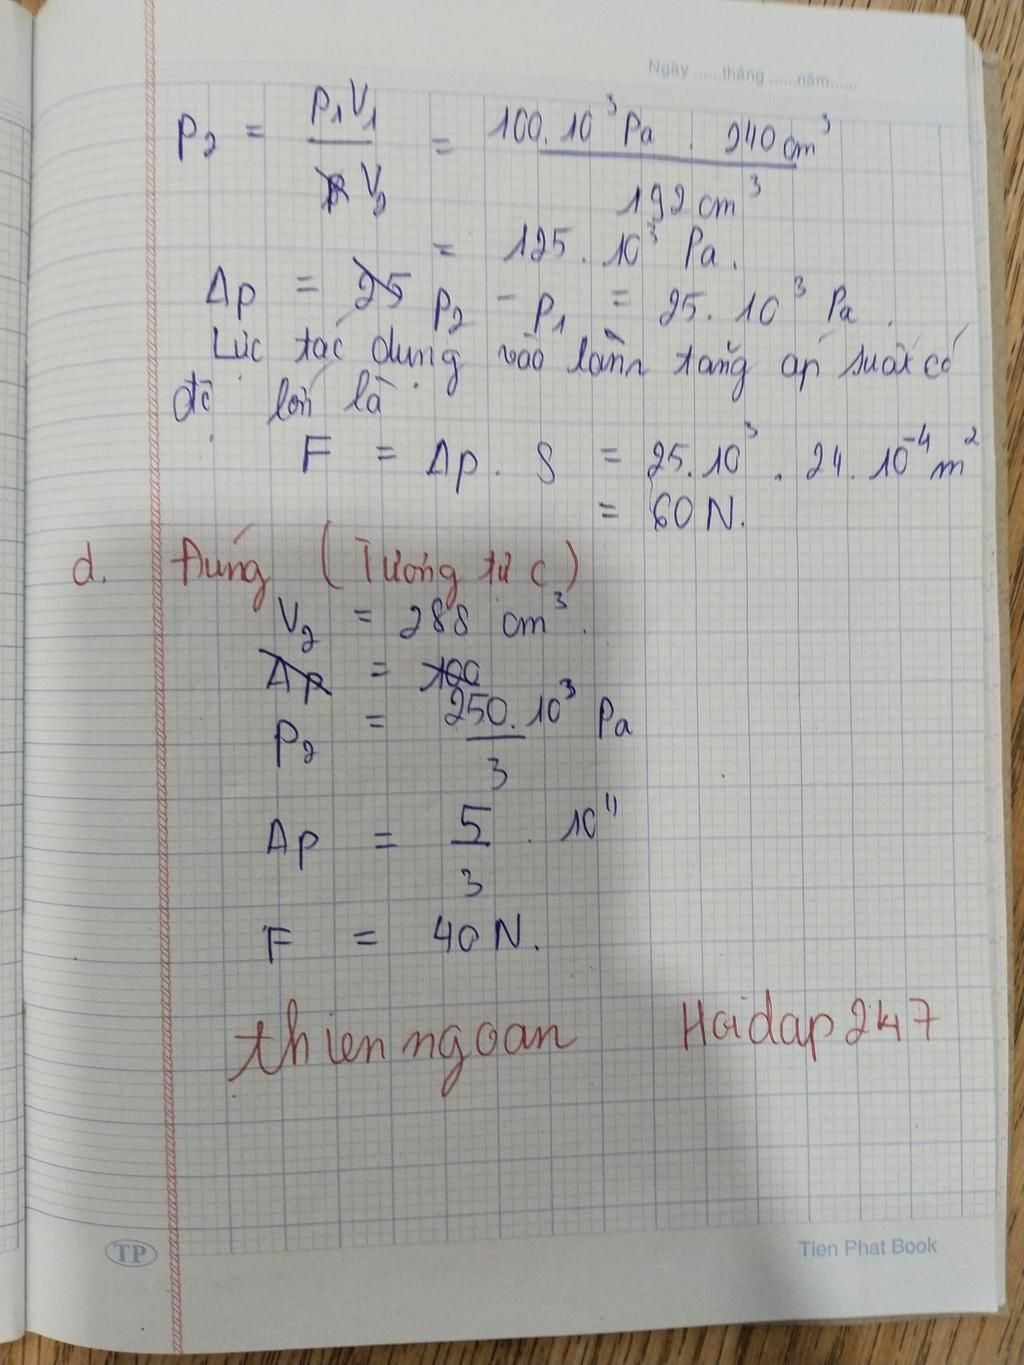 Ngày ......tháng ......năm......
p₂ = p₁V₁ / V₂ = 100.10³ Pa . 240 cm³ / 192 cm³
= 125. 10³ Pa.
Δp = 25 p₂ - p₁ = 25. 10³ Pa.
Lực tác dụng vào làm tăng áp suất có
độ lớn là
F = Δp. S = 25.10³ . 24. 10⁻⁴ m²
= 60 N.
d. Đúng (Tương tự c)
V₂ = 288 cm³.
Δp = 100
p₂ = 250.10³ / 3 Pa
Δp = 5/3 . 10⁴
F = 40 N.
thienngoan Hoidap247
TP Tien Phat Book